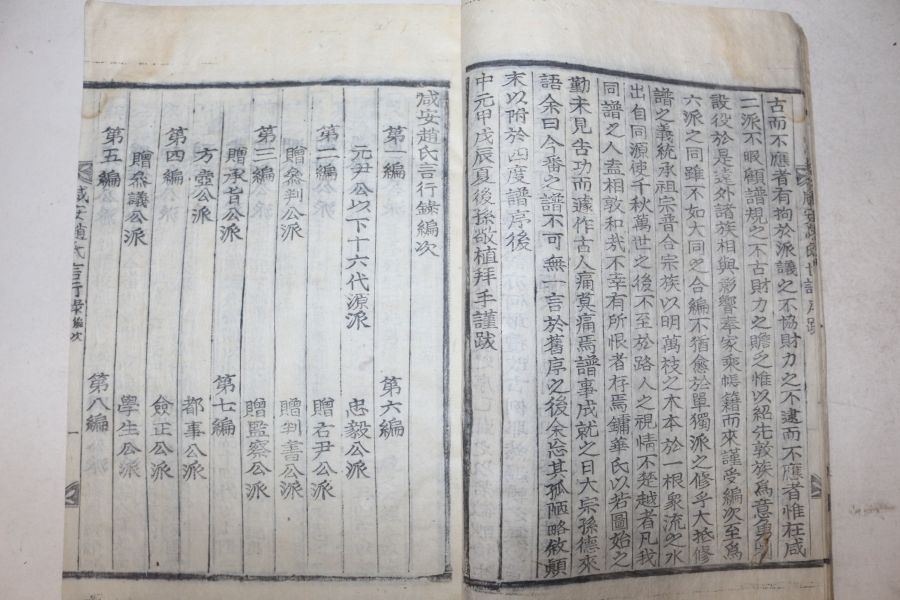 古而不應者有拘於派議之不協財力之不逮而不應者惟在咸
二派不暇顧譜規之不古財力之贍之惟以紹先敦族爲意
設役於是遠外諸族相與影響奉家乘帳籍而來謹受編次至爲
六派之同雖不如大同之合編不猶愈於單獨派之修乎大抵修
譜之義統承祖宗普合宗族以明萬枝之木本於一根衆流之水
出自同源使千秋萬世之後不至於路人之視情不楚越者凡我
同譜之人盍相敦和哉不幸有所恨者存焉鏞華氏以若圖始之
勤未見告功而遽作古人痛莫痛焉譜事成就之日大宗孫德來
語余曰今番之譜不可無一言於舊序之後余忘其孤陋略敘顛
末以附於四度譜序後
中元甲戊辰夏後孫敬植拜手謹跋
咸安趙氏言行錄編次
第一編
元尹公以下十六代源派
第二編
贈參判公派
第三編
贈承旨公派
方壺公派
第四編
贈參議公派
第五編
第六編
忠毅公派
贈右尹公派
贈判書公派
贈監察公派
第七編
都事公派
僉正公派
學生公派
第八編
咸安趙氏言行錄 編次
一